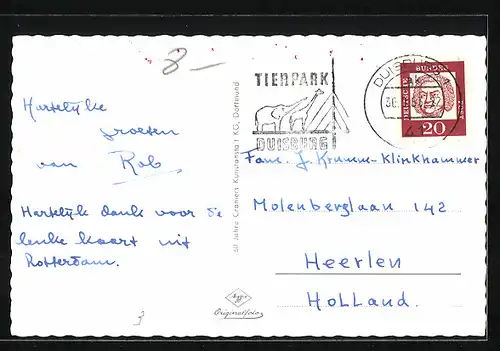 8 –
TIERPARK
DUISBURG
DUISBURG
20
Hartelijke
groeten
van Rob
Hartelijk dank voor de
leuke kaart uit
Rotterdam.
60 Jahre Cramers Kunstanstalt KG, Dortmund
Fam. J. Krumm-Klinkhammer
Molenberglaan 142
Heerlen
Holland.
Agfa
Originalfoto
3